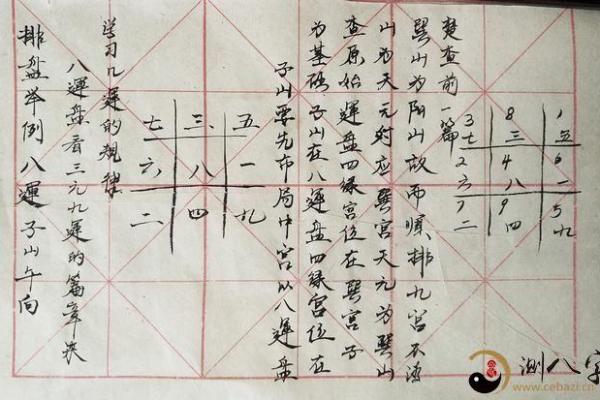 排盘举例八運子山午向
八運盘看三元九運的篇章决
学习九運的規律
七 三 五
六 八 一
二 四 九
子山要先布局中宫以八運盘
为基础子山在八運盘四緑宫位在
查原始運盘四緑宫位在巽宫子
山为天元对应巽宫天元为巽山
巽山为陽山故而順排九宫不清
楚查前一篇
3 8 1
七 三 五
2 4 6
六 八 一
7 9 5
二 四 九
测八字
www.cebazi.com